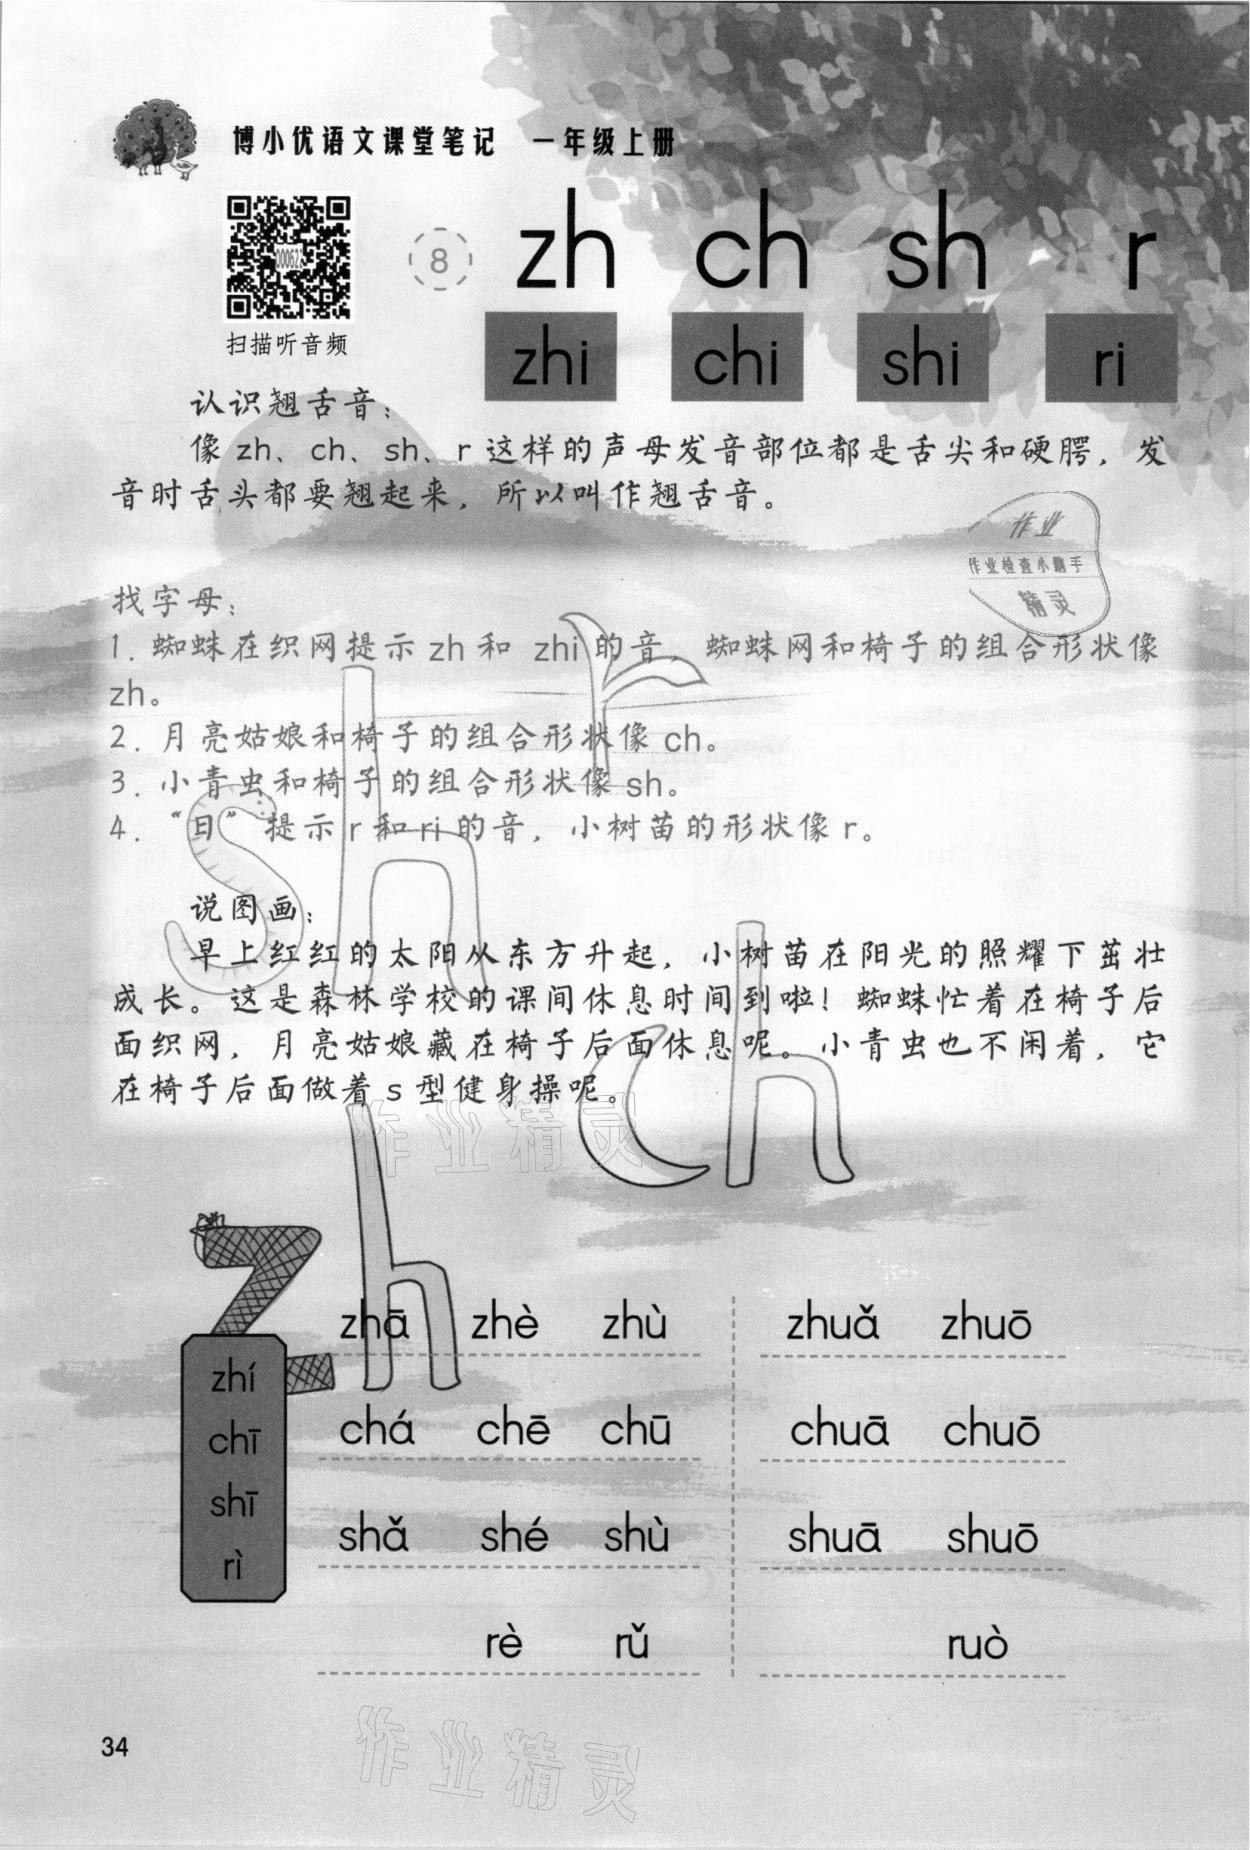 博小优语文课堂笔记 一年级上册
000622
扫描听音频
8 zh ch sh r
zhi chi shi ri
认识翘舌音：
像 zh、ch、sh、r 这样的声母发音部位都是舌尖和硬腭，发
音时舌头都要翘起来，所以叫作翘舌音。
作业
作业检查小助手
精灵
找字母：
1. 蜘蛛在织网提示 zh 和 zhi 的音，蜘蛛网和椅子的组合形状像
zh。
2. 月亮姑娘和椅子的组合形状像 ch。
3. 小青虫和椅子的组合形状像 sh。
4. “日”提示 r 和 ri 的音，小树苗的形状像 r。
r
sh
说图画：
早上红红的太阳从东方升起，小树苗在阳光的照耀下茁壮
成长。这是森林学校的课间休息时间到啦！蜘蛛忙着在椅子后
面织网，月亮姑娘藏在椅子后面休息呢。小青虫也不闲着，它
在椅子后面做着 s 型健身操呢。
ch
作业精灵
zh
zhā zhè zhù zhuǎ zhuō
zhí
chá chē chū chuā chuō
chī
shī
shǎ shé shù shuā shuō
rì
rè rǔ ruò
34
作业精灵